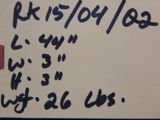 RK15/04/02
L: 44"
W: 3"
H: 3"
Wgt. 26 Lbs.